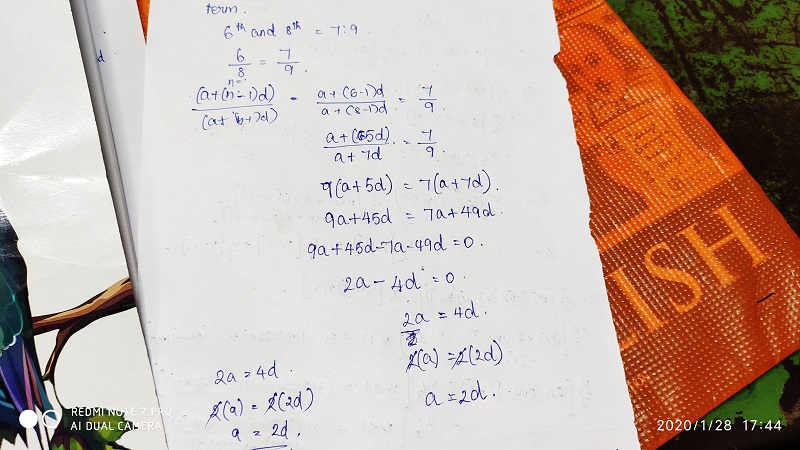 term.
6th and 8th = 7:9.
6/8 = 7/9.
n=
(a+(n-1)d) = a+(6-1)d / a+(8-1)d = 7/9
a+(5d) / a+7d = 7/9.
9(a+5d) = 7(a+7d).
9a+45d = 7a+49d.
9a+45d-7a-49d=0.
2a-4d=0.
2a=4d.
2
2(a)=2(2d)
a=2d.
2a=4d.
2(a)=2(2d)
a=2d.
d
LISH
REDMI NOTE 7 PRO
AI DUAL CAMERA
2020/1/28 17:44